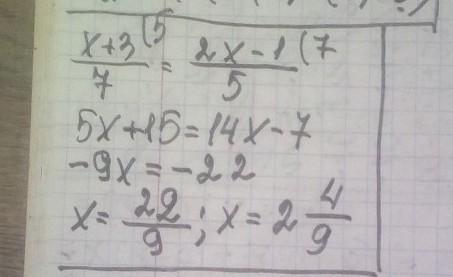 (x+3)/7 (5 = (2x-1)/5 (7
5x+15=14x-7
-9x=-22
x=22/9; x=2 4/9